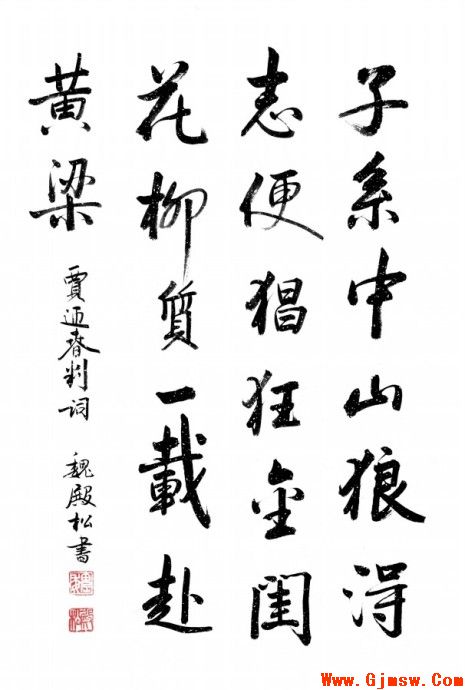 子系中山狼得
志便猖狂金闺
花柳质一載赴
黄梁
賈迎春判词 魏殿松書
Www.Gjmsw.Com